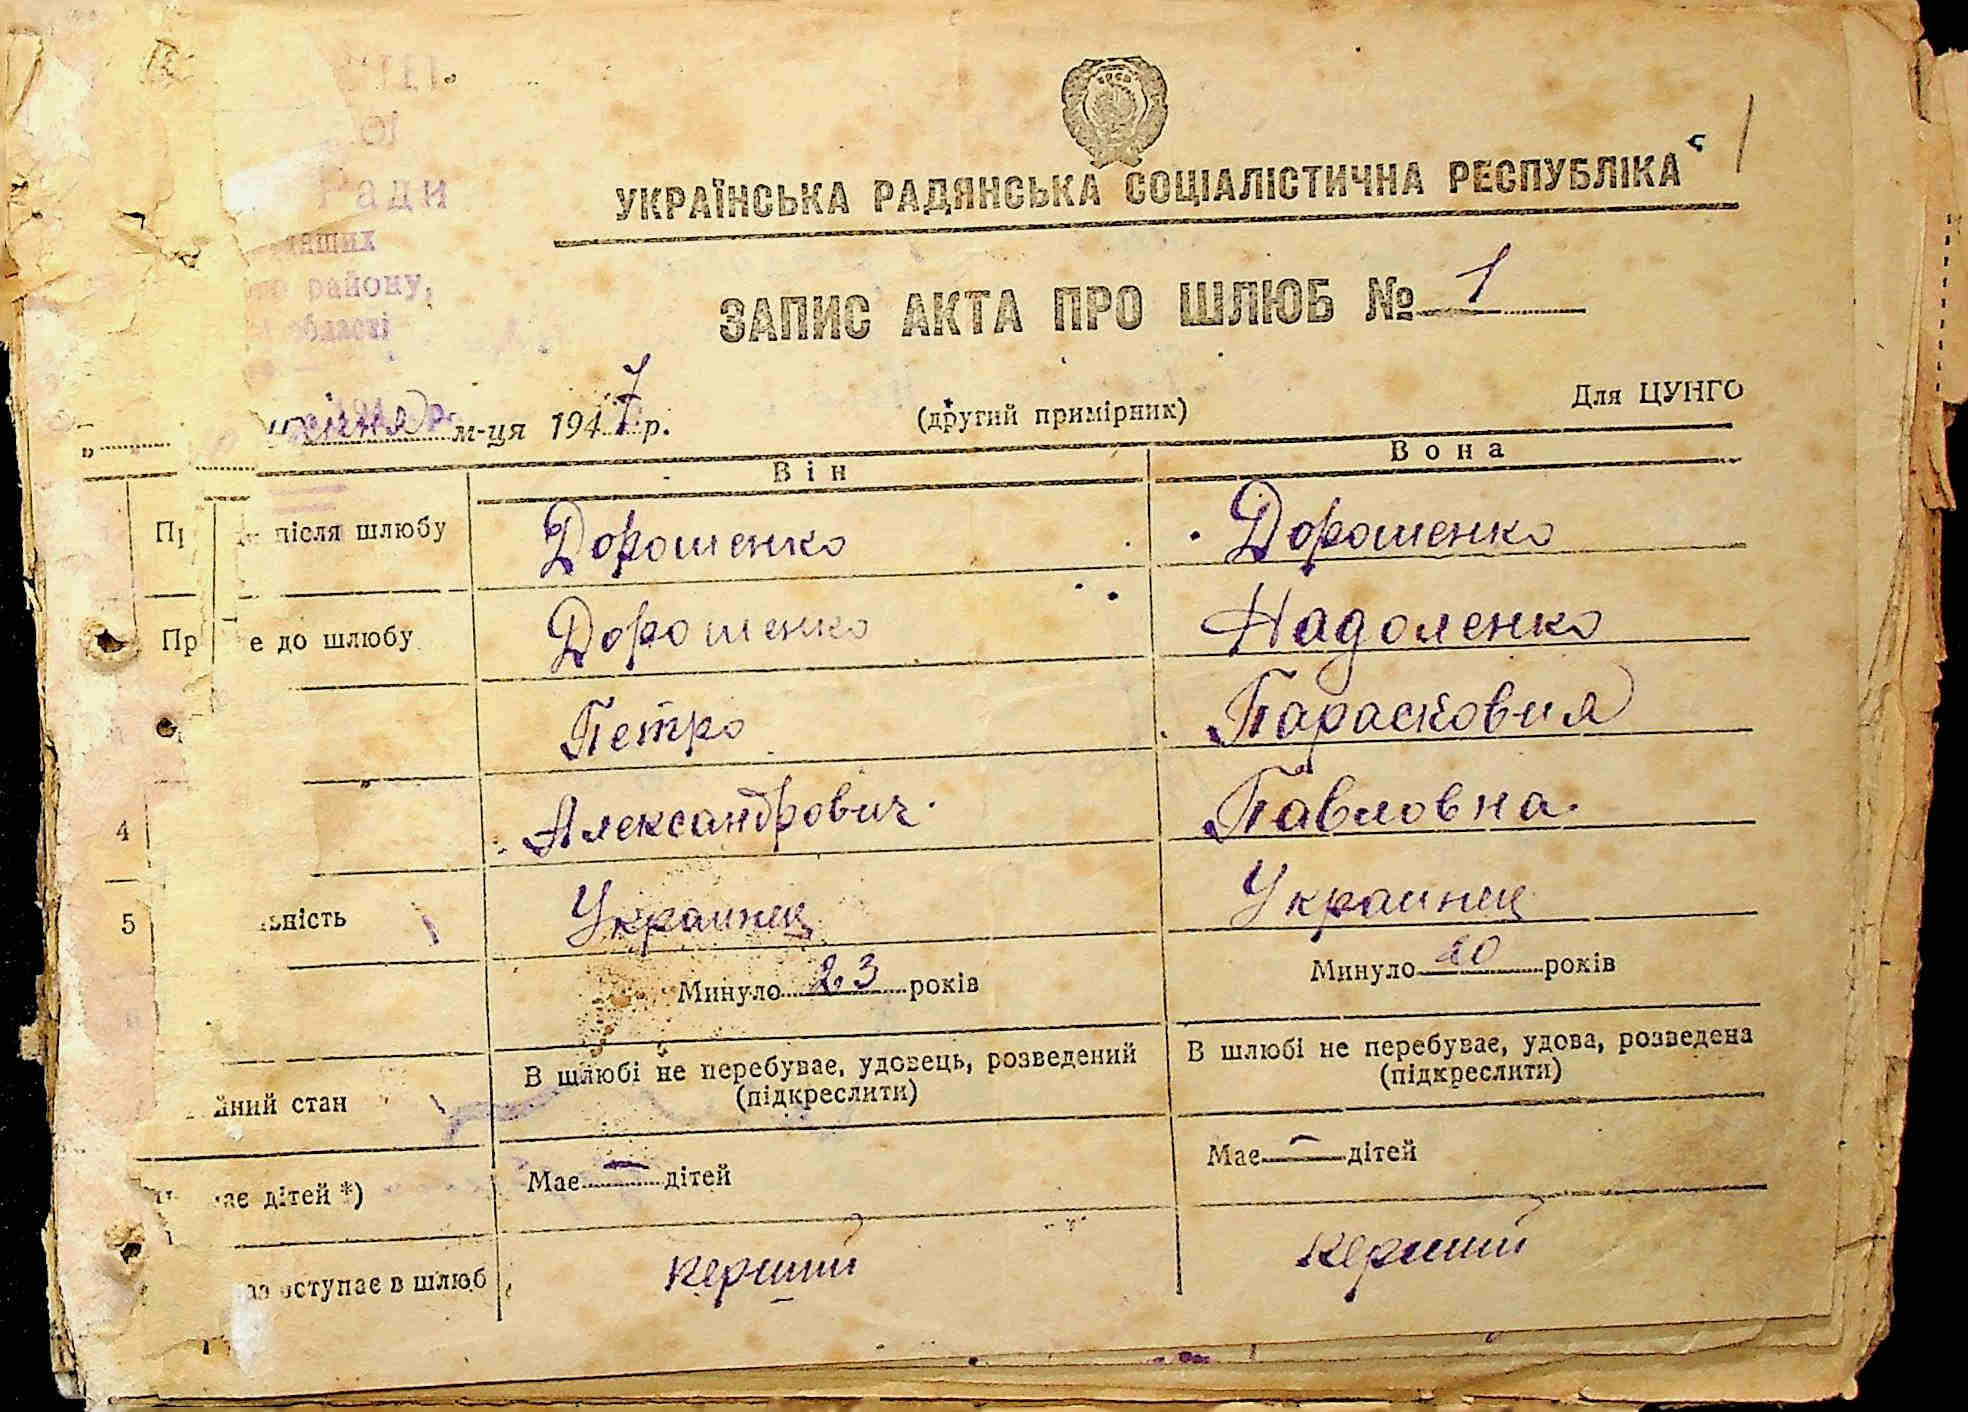 Ради
району,
області
УКРАЇНСЬКА РАДЯНСЬКА СОЦІАЛІСТИЧНА РЕСПУБЛІКА
ЗАПИС АКТА ПРО ШЛЮБ № 1
м-ця 1947 р. (другий примірник) Для ЦУНГО
Він Вона
після шлюбу Дорошенко Дорошенко
до шлюбу Дорошенко Надоленко
Петро Парасковия
4 Александрович Павловна
5 Украинец Украинец
Минуло 23 років Минуло 20 років
В шлюбі не перебуває, удовець, розведений В шлюбі не перебуває, удова, розведена
(підкреслити) (підкреслити)
стан
дітей *) Має — дітей Має — дітей
вступає в шлюб перший перший